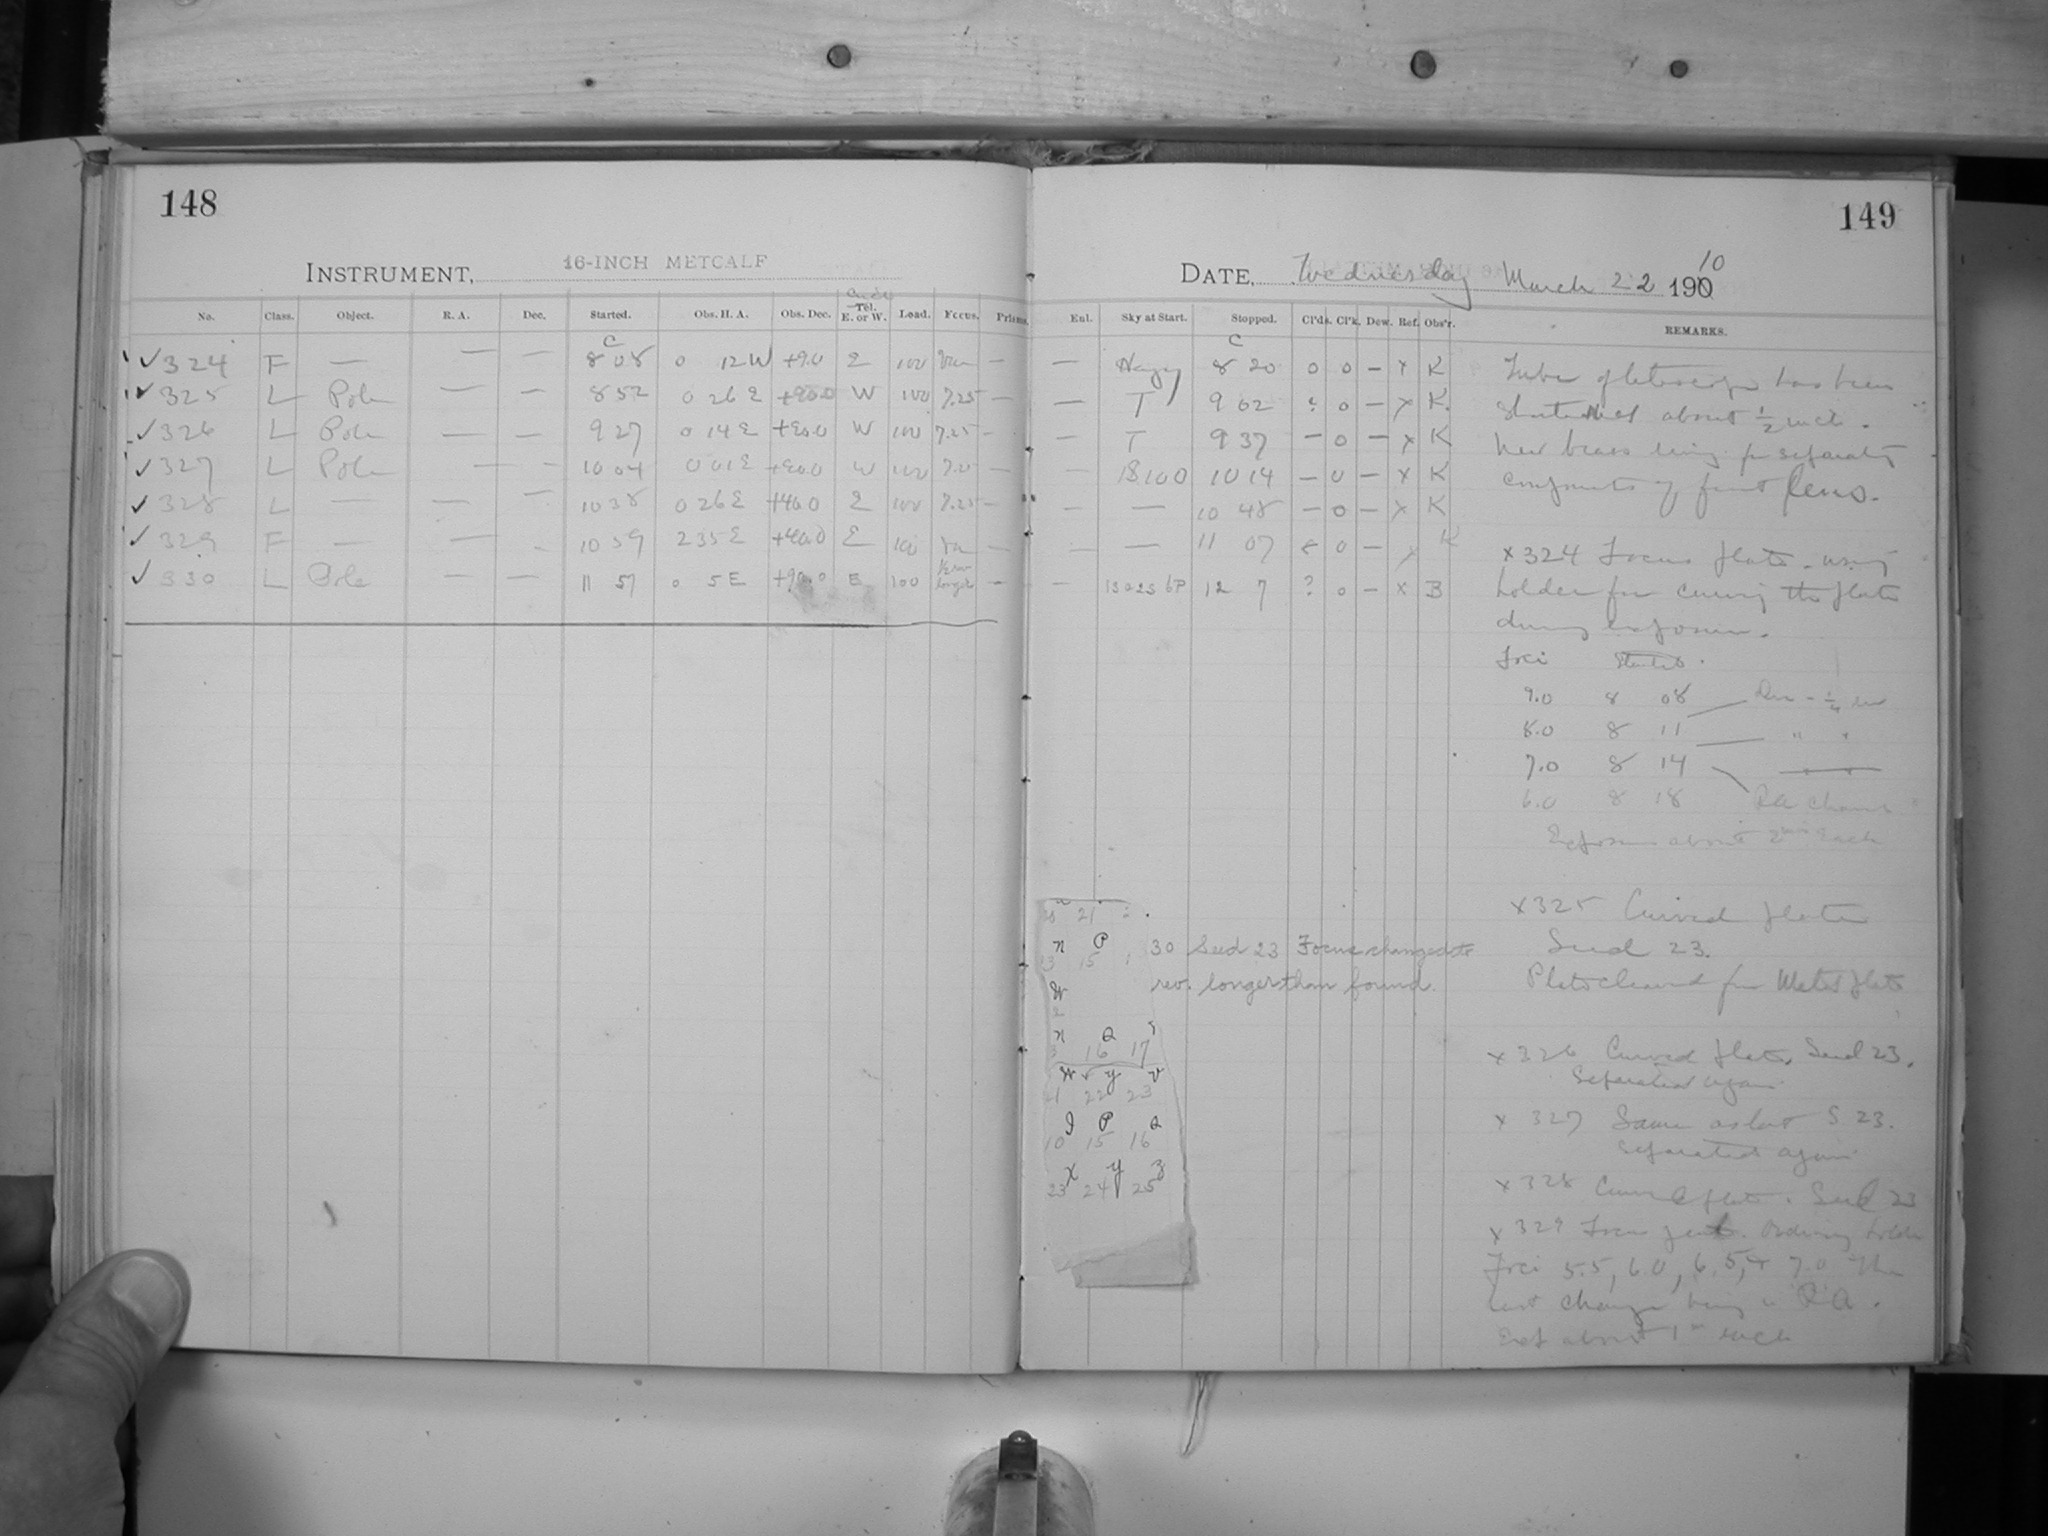 148
INSTRUMENT, 16-INCH METCALF
No. Class. Object. R. A. Dec. Started. Obs. H. A. Obs. Dec. Tel. E. or W. Load. Focus. Prisms.
C
✓324 F — — — 8 08 0 12W +9.0 E 100 —
✓325 L Pole — — 8 52 0 26 E +90.0 W 100 7.25 —
✓326 L Pole — — 9 27 0 14 E +90.0 W 100 7.25 —
✓327 L Pole — — 10 04 0 01 E +90.0 W 100 7.0 —
✓328 L — — — 10 38 0 26 E +40.0 E 100 7.25 —
✓329 F — — — 10 59 2 35 E +40.0 E 100 —
✓330 L Pole — — 11 57 0 5 E +90.0 E 100 longer —
149
DATE, Wednesday March 22 1910
Enl. Sky at Start. Stopped. Cl'ds. Cl'k. Dew. Ref. Obs'r. REMARKS.
C
— Hazy 8 20 0 0 — x K
— T 9 02 ? 0 — x K.
— T 9 37 — 0 — x K
— 18100 10 14 — 0 — x K
— — 10 48 — 0 — x K
— — 11 07 0 — x K
— 12 7 ? 0 — x B
Tube of telescope has been
shortened about 1/2 inch.
New brass ring for separating
components of front lens.
x324 Focus plate. using
holder for curving the plate
during exposure.
Foci Started.
9.0 8 08 Dec - 1/4
8.0 8 11 " "
7.0 8 14
6.0 8 18 RA change
Exposures about 2 min each
x325 Curved plate
Seed 23.
x326 Curved plate, Seed 23.
Separated again
x 327 Same as last S 23.
Separated again
x328 Curved plate. Seed 23
x329 Focus plate. Ordinary holder
Foci 5.5, 6.0, 6.5, + 7.0 The
last change being in RA.
Exp about 1 m each
30 Seed 23 Focus changed to
rev. longer than found.
21
n P
15
W
n Q
16 17
W y v
21 22 23
J P Q
10 15 16
X y z
23 24 25